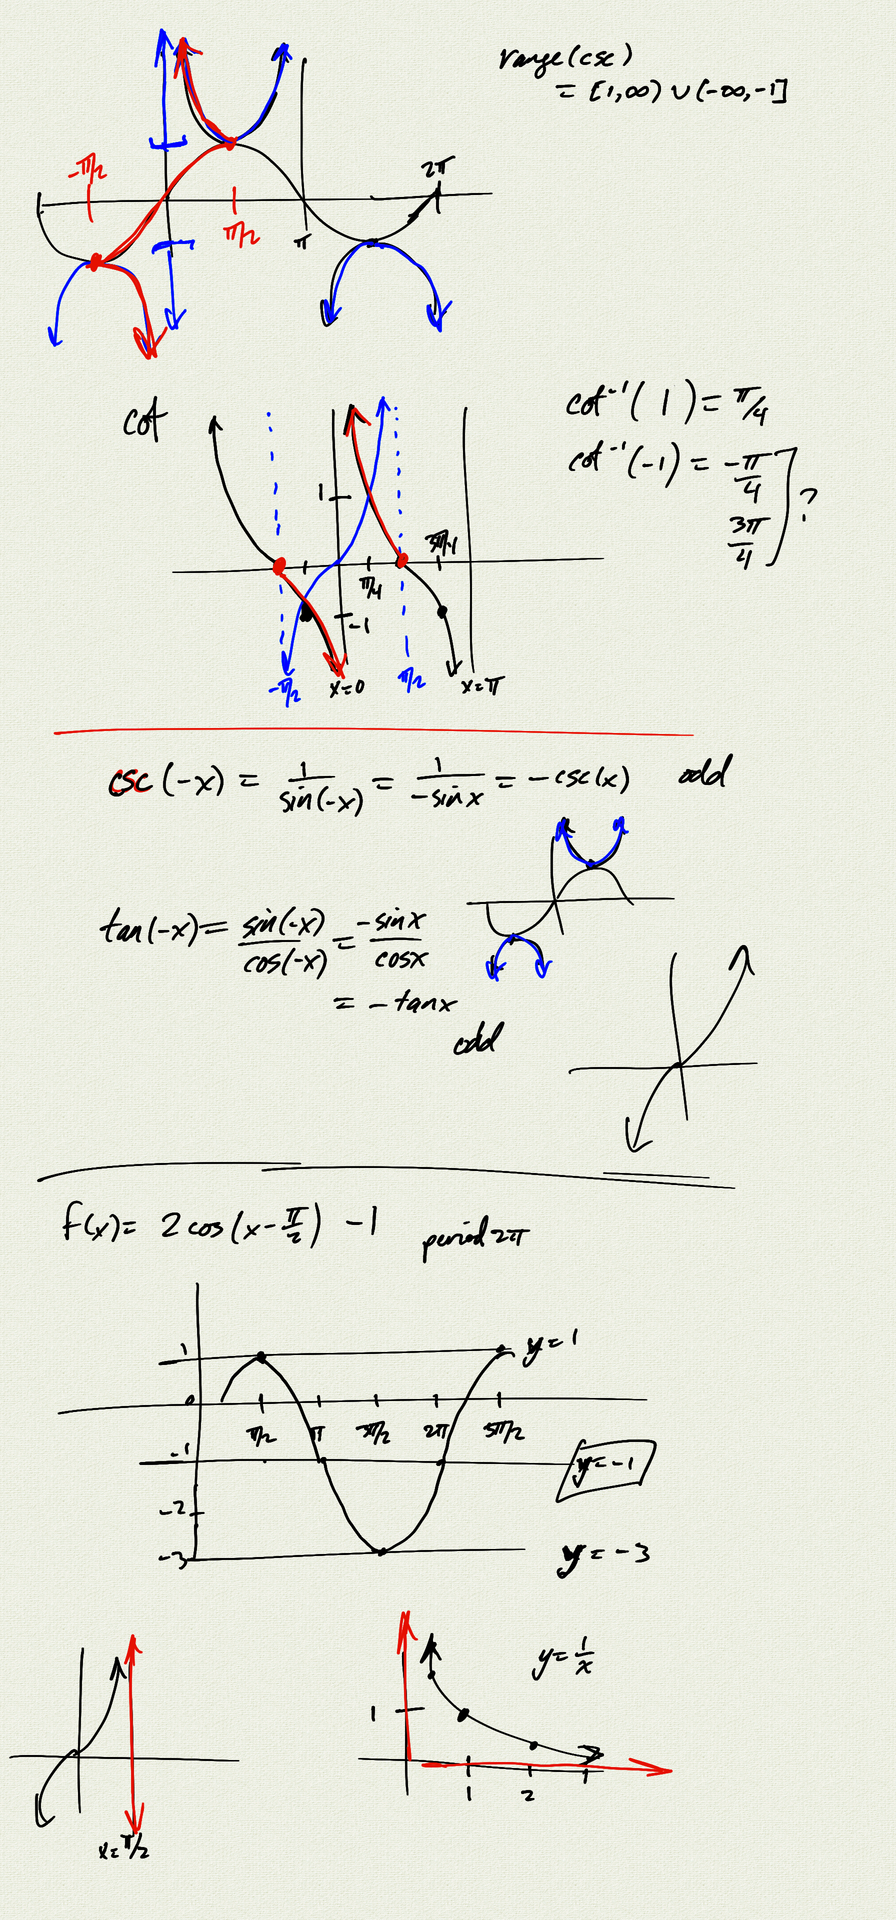 range(csc)
= [1,∞) ∪ (-∞,-1]
-π/2
π/2
π
2π
cot
cot⁻¹(1) = π/4
cot⁻¹(-1) = -π/4
3π/4
?
1
π/4
3π/4
-1
-π/2
x=0
π/2
x=π
csc(-x) = 1/sin(-x) = 1/-sinx = -csc(x) odd
tan(-x) = sin(-x)/cos(-x) = -sinx/cosx
= -tanx
odd
f(x) = 2cos(x-π/2) -1 period 2π
1
y=1
0
π/2 π 3π/2 2π 5π/2
-1
y=-1
-2
-3
y=-3
x=π/2
y=1/x
1
1 2